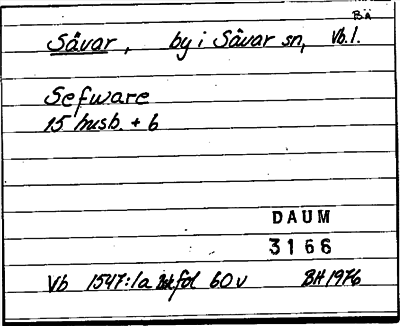 BÄ
Sävar, by i Sävar sn, Vb. l.
Sefware
15 husb. + 6
DAUM
3166
Vb 1547:1a fol 60 v BH 1976